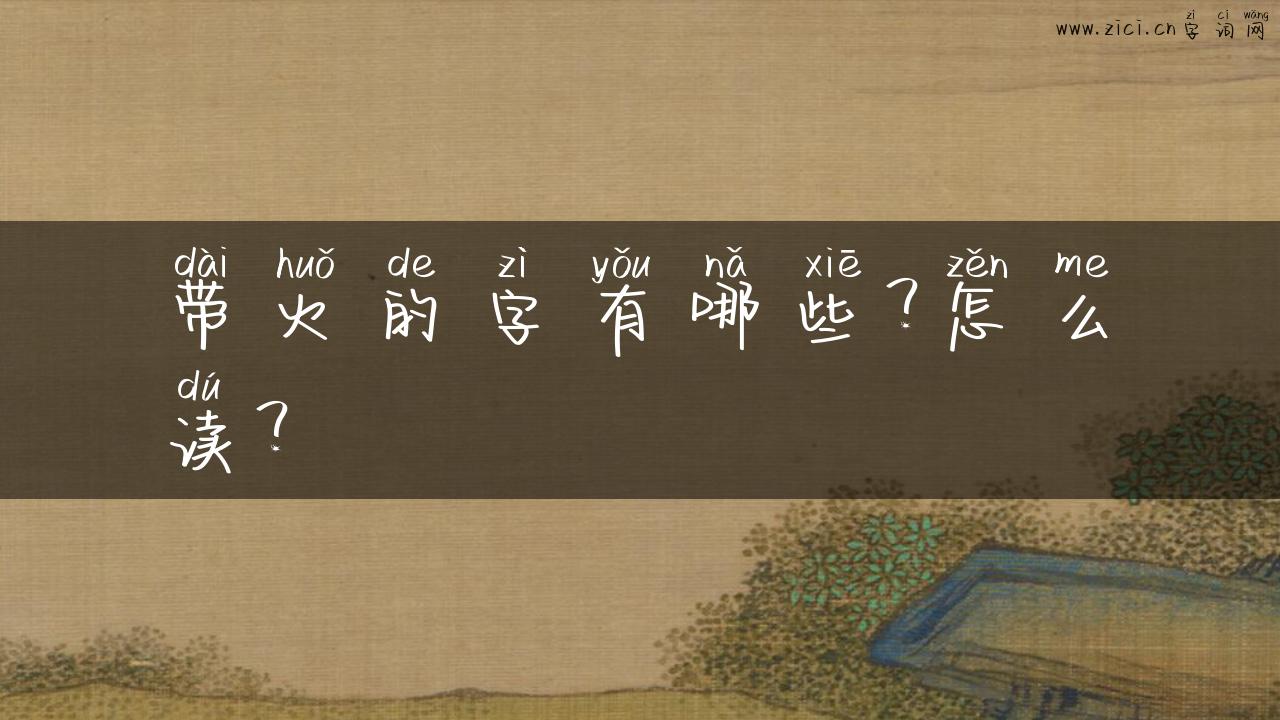 zì cí wǎng
www.zici.cn 字词网
dài huǒ de zì yǒu nǎ xiē zěn me
带火的字有哪些?怎么
dú
读?